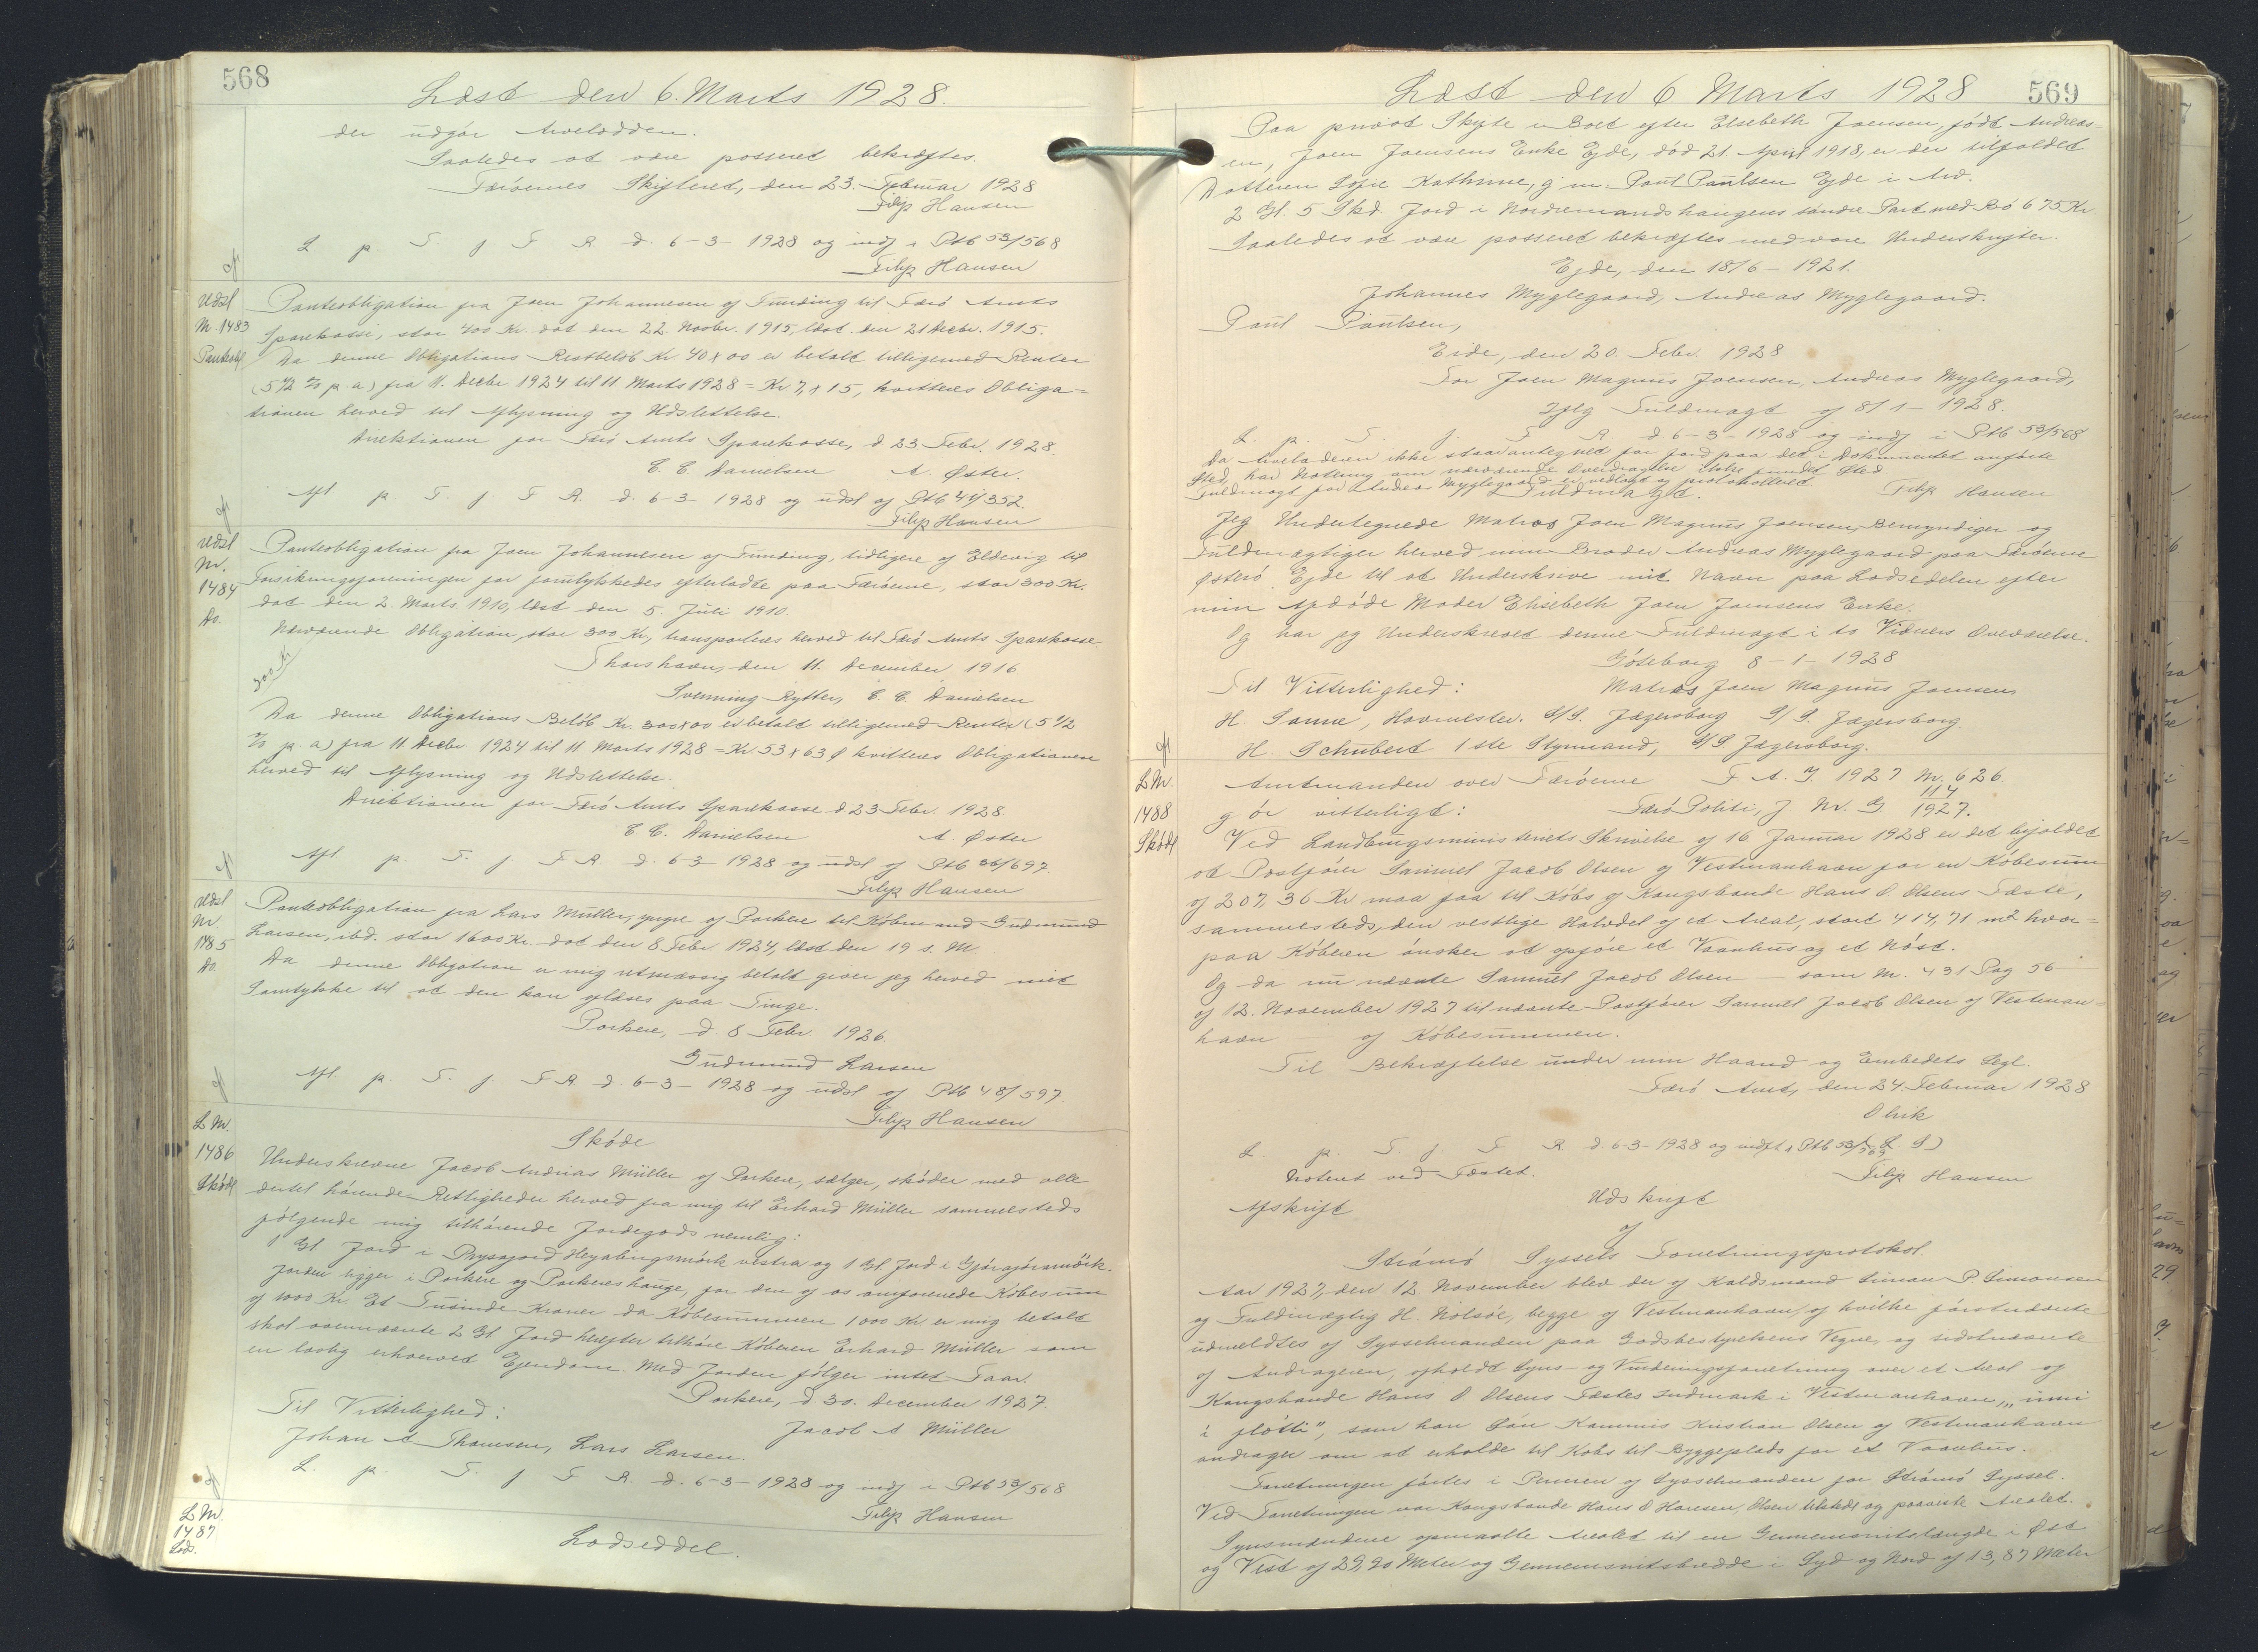 568
Læst den 6. Marts 1928.
der udgør Arvelodden.
Saaledes at være passeret bekræftes.
Færøernes Skifteret, den 23. Februar 1928
Filip Hansen
L p. T. f F R. d. 6-3-1928 og indf i Ptb 53/568
Filip Hansen
Udsl
Nr. 1483
Panteobl
Panteobligation fra Joen Johannesen af Funding til Færø Amts
Sparekasse, stor 400 Kr. dat den 22. Novbr. 1915, læst den 21 Decbr. 1915.
Da denne Obligations Restbeløb Kr. 40 x 00 er betalt tilligemed Renter
(5 1/2 % p. a) fra 11. Decbr 1924 til 11. Marts 1928 = Kr 7, x 15, kvitteres Obliga=
tionen herved til Aflysning og Udslettelse.
Direktionen for Færø Amts Sparekasse, d 23 Febr. 1928.
C. C. Danielsen A. Øster.
Afl p. T. f. F R. d. 6-3-1928 og udsl af Ptb 44/352.
Filip Hansen
Udsl
Nr.
1484
Do.
Panteobligation fra Joen Johannesen af Funding, tidligere af Eldevig til
Forsikringsforeningen for forulykkedes efterladte paa Færøerne, stor 300 Kr.
dat den 2. Marts. 1910, læst den 5. Juli 1910.
Nærværende Obligation, stor 300 Kr., transporteres herved til Færø Amts Sparekasse.
300 Kr
Thorshavn, den 11. December 1916
Svenning Rytter, C. C. Danielsen
Da denne Obligations Beløb Kr. 300 x 00 er betalt tilligemed Renter (5 1/2
% p. a) fra 11 Decbr 1924 til 11 Marts 1928 = Kr. 53 x 63 Ø kvitteres Obligationen
herved til Aflysning og Udslettelse.
Direktionen for Færø Amts Sparekasse d 23 Febr. 1928.
C. C. Danielsen A. Øster
Afl p. T. f. F. R. d. 6-3-1928 og udsl af Ptb 36/697.
Filip Hansen
Udsl
Nr.
1485
Do.
Panteobligation fra Lars Müller, yngre af Porkere til Købmand Gudmund
Larsen, ibd. stor 1600 Kr. dat den 8 Febr. 1924, læst den 19 s. M.
Da denne Obligation er mig retmæssig betalt giver jeg herved mit
Samtykke til at den kan aflæses paa Tinge.
Porkere, d. 8 Febr 1926.
Gudmund Larsen
Afl. p. T. f. F R. d. 6-3-1928 og udsl af Ptb 48/597.
Filip Hansen
L Nr.
1486
Skøde
Skøde
Underskrevne Jacob Andrias Müller af Porkere, sælger, skøder med alle
dertil hørende Rettigheder herved fra mig til Erhard Müller sammesteds
følgende mig tilhørende Jordegods nemlig:
1 Gl Jord i Prysagord Heyabingsmørk vestra og 1 Gl Jord i Gjøragjøramørk.
Jorden ligger i Porkere og Porkereshauge, for den af os omforenede Købesum
af 1000 Kr. Et Tusinde Kroner da Købesummen 1000 Kr er mig betalt
skal ovennævnte 2 Gl Jord herefter tilhøre Køberen Erhard Müller som
en lovlig erhvervet Ejendom. Med Jorden følger intet Faar.
Porkere, d 30. December 1927.
Til Vitterlighed: Jacob A Müller
Johan A Thomsen, Lars Larsen.
L. p. T. f F R. d. 6-3-1928 og indf i Ptb 53/568
Filip Hansen
L Nr.
1487
Lods.
Lodseddel.
Læst den 6 Marts 1928
569
Paa privat Skifte i Boet efter Elsebeth Joensen, født Andreas=
en, Joen Joensens Enke Ejde, død 21. April 1918, er der tilfaldet
Datteren Sofie Kathrine, g. m. Paul Paulsen Ejde i Arv.
2 Gl. 5 Skd Jord i Nordremandshaugens søndre Part med Bø 675 Kr.
Saaledes at være passeret bekræftes med vore Underskrifter.
Ejde, den 18/6-1921.
Johannes Myglegaard, Andreas Myglegaard.
Paul Paulsen,
Eide, den 20. Febr. 1928
For Joen Magnus Joensen, Andreas Myglegaard,
Iflg Fuldmagt af 8/1-1928.
L. p. T. f. F R d 6-3-1928 og indf i Ptb 53/568
Da Arveladeren ikke staar antegnet for Jord paa det i Dokumentet anførte
Sted, har Notering om nærværende Overdragelse ikke fundet Sted
Fuldmagt for Andreas Myglegaard er vedlagt og protokolleret Filip Hansen
Fuldmagt.
Jeg Undertegnede Matros Joen Magnus Joensen, Bemyndiger og
Fuldmægtiger herved min Broder Andreas Myglegaard paa Færøerne
Østerø Ejde til at Underskrive mit Navn paa Lodsedelen efter
min Afdøde Moder Elisebeth Joen Joensens Enke.
Og har jeg Underskrevet denne Fuldmagt i to Vidners Overværelse.
Göteborg 8-1-1928
Til Vitterlighed: Matros Joen Magnus Joensen
H. Sanne, Hovmester. S/S. Jægersborg S/S. Jægersborg
H. Schubert 1ste Styrmand, S/S Jægersborg.
L Nr.
1488
Skøde
Amtmanden over Færøerne F. A. J. 1927 Nr. 626.
gør vitterligt: Færø Politi, J. Nr. G 114/1927.
Ved Landbrugsministeriets Skrivelse af 16 Januar 1928 er det bifaldet
at Postfører Samuel Jacob Olsen af Vestmanhavn for en Købesum
af 207,36 Kr maa faa til Købs af Kongsbonde Hans O Olsens Fæste,
sammesteds, den vestlige Halvdel af et Areal, stort 414,71 m2 hvor=
paa Køberen ønsker at opføre et Vaanhus og et Nøst.
Og da nu nævnte Samuel Jacob Olsen — som Nr. 431 Pag 56
af 12. November 1927 til nævnte Postfører Samuel Jacob Olsen af Vestman=
havn — af Købesummen.
Til Bekræftelse under min Haand og Embedets Segl.
Færø Amt, den 24. Februar 1928
Olrik
(L S)
L. p. T. f F R. d. 6-3-1928 og indft i Ptb 53/569
Noteret ved Fæstet. Filip Hansen
Afskrift Udskrift
af
Strømø Syssels Forretningsprotokol.
Aar 1927, den 12 November blev der af Kaldsmand Simon P Simonsen
og Fuldmægtig H. Nolsøe, begge af Vestmanhavn, af hvilke førstnævnte
udmeldtes af Sysselmanden paa Godsbestyrelsens Vegne, og sidstnævnte
af Andrageren, afholdt Syns- og Vurderingsforretning over et Areal af
Kongsbonde Hans O Olsens Fæstes Indmark i Vestmanhavn, "inni
i fløtti", som han Søn Kommis Kristian Olsen af Vestmanhavn
andrager om at erholde til Købs til Byggeplads for et Vaanhus.
Forretningen førtes i Pennen af Sysselmanden for Strømø Syssel.
Ved Forretningen var Kongsbonde Hans O Hansen, Olsen tilstede og paaviste Arealet.
Synsmændene opmaalte Arealet til en Gennemsnitslængde i Øst
og Vest af 29,90 Meter og Gennemsnitsbredde i Syd og Nord af 13,87 Meter